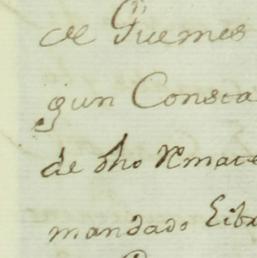 de Guemes
gun Consta
de dho Rmate
mandado Libr